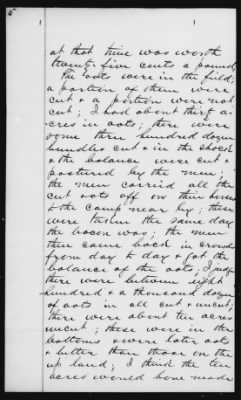 5
1
1
at that time was worth
twenty five cents a pound,
The oats were in the field;
a portion of them were
cut & a portion were not
cut; I had about thirty a-
cres in oats; there were
some three hundred dozen
bundles cut & in the shock
& the balance were cut &
pastured by the men;
the men carried all the
cut oats off on their horses
to the camp near by; these
were taken the same day
the bacon was; the men
then came back in crowds
from day to day & got the
balance of the oats, I judge
there were between eight
hundred & a thousand dozen
of oats in all cut & uncut;
there were about ten acres
uncut; these were in the
bottoms & were later oats
& better than those on the
up land; I think the ten
acres would have made